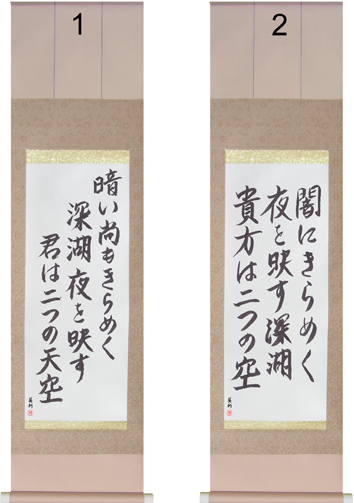 1
暗い尚もきらめく
深湖夜を映す
君は二つの天空
2
闇にきらめく
夜を映す深湖
貴方は二つの空